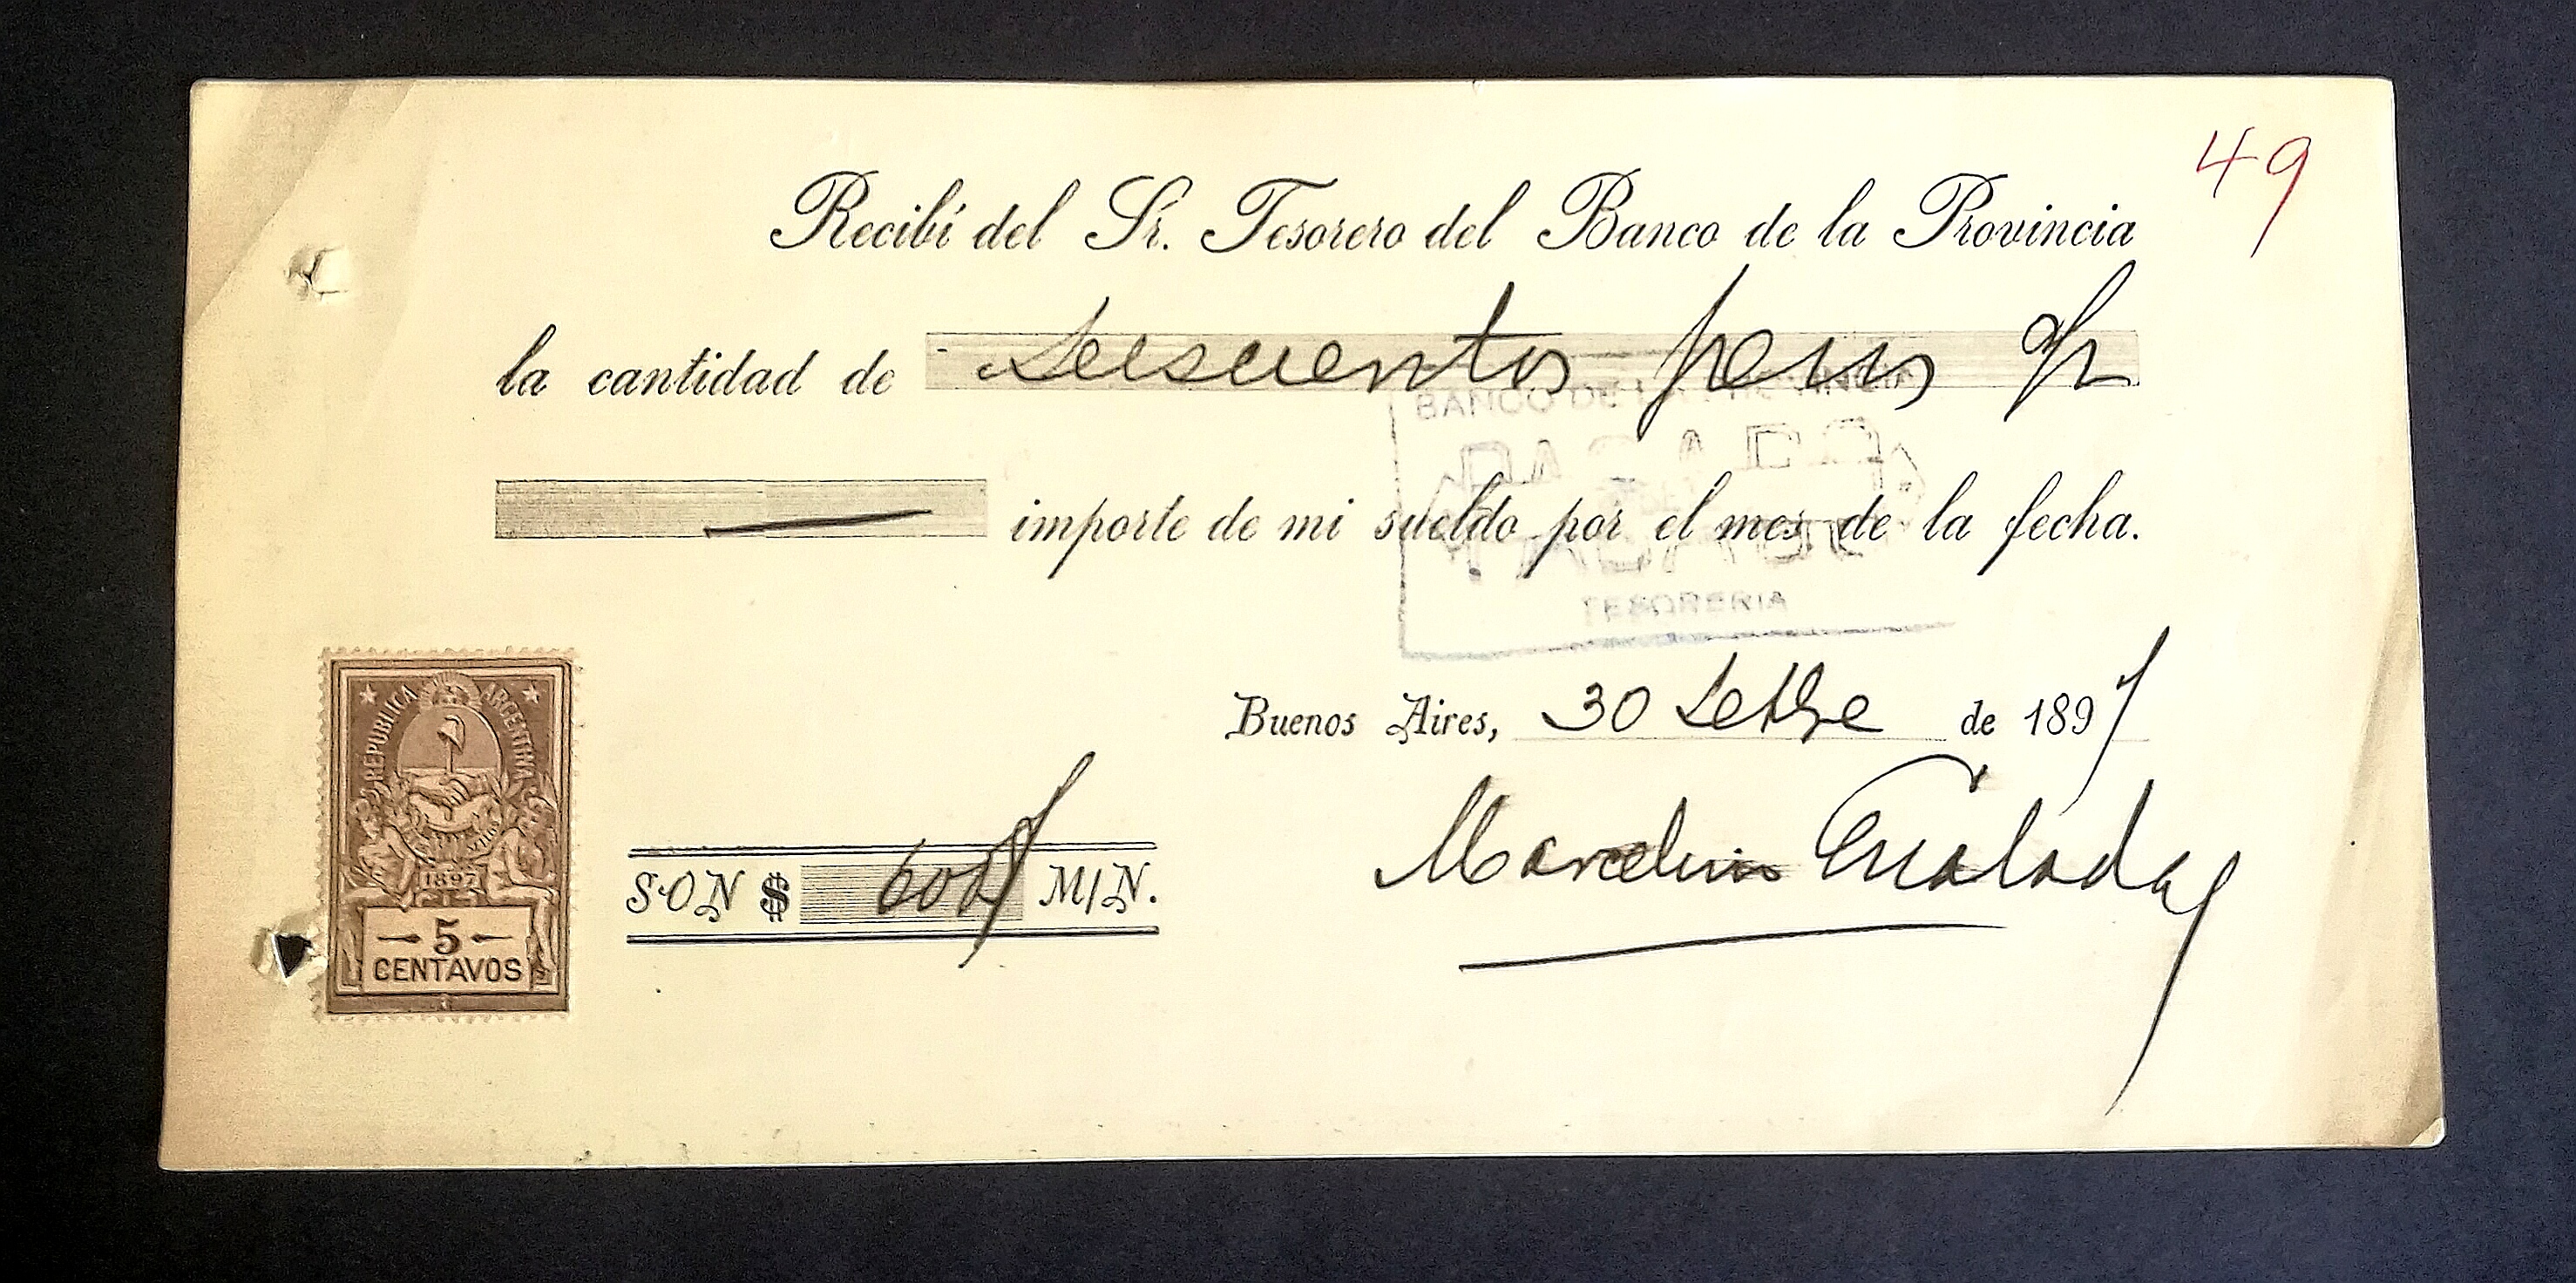 49
Recibí del Sr. Tesorero del Banco de la Provincia
la cantidad de Seiscientos pesos m/n
importe de mi sueldo por el mes de la fecha.
BANCO DE LA PROVINCIA
PAGADO
TESORERIA
Buenos Aires, 30 Setbre de 1897
REPUBLICA ARGENTINA
1897
5
CENTAVOS
SON $ 600 M/N.
Marcelino